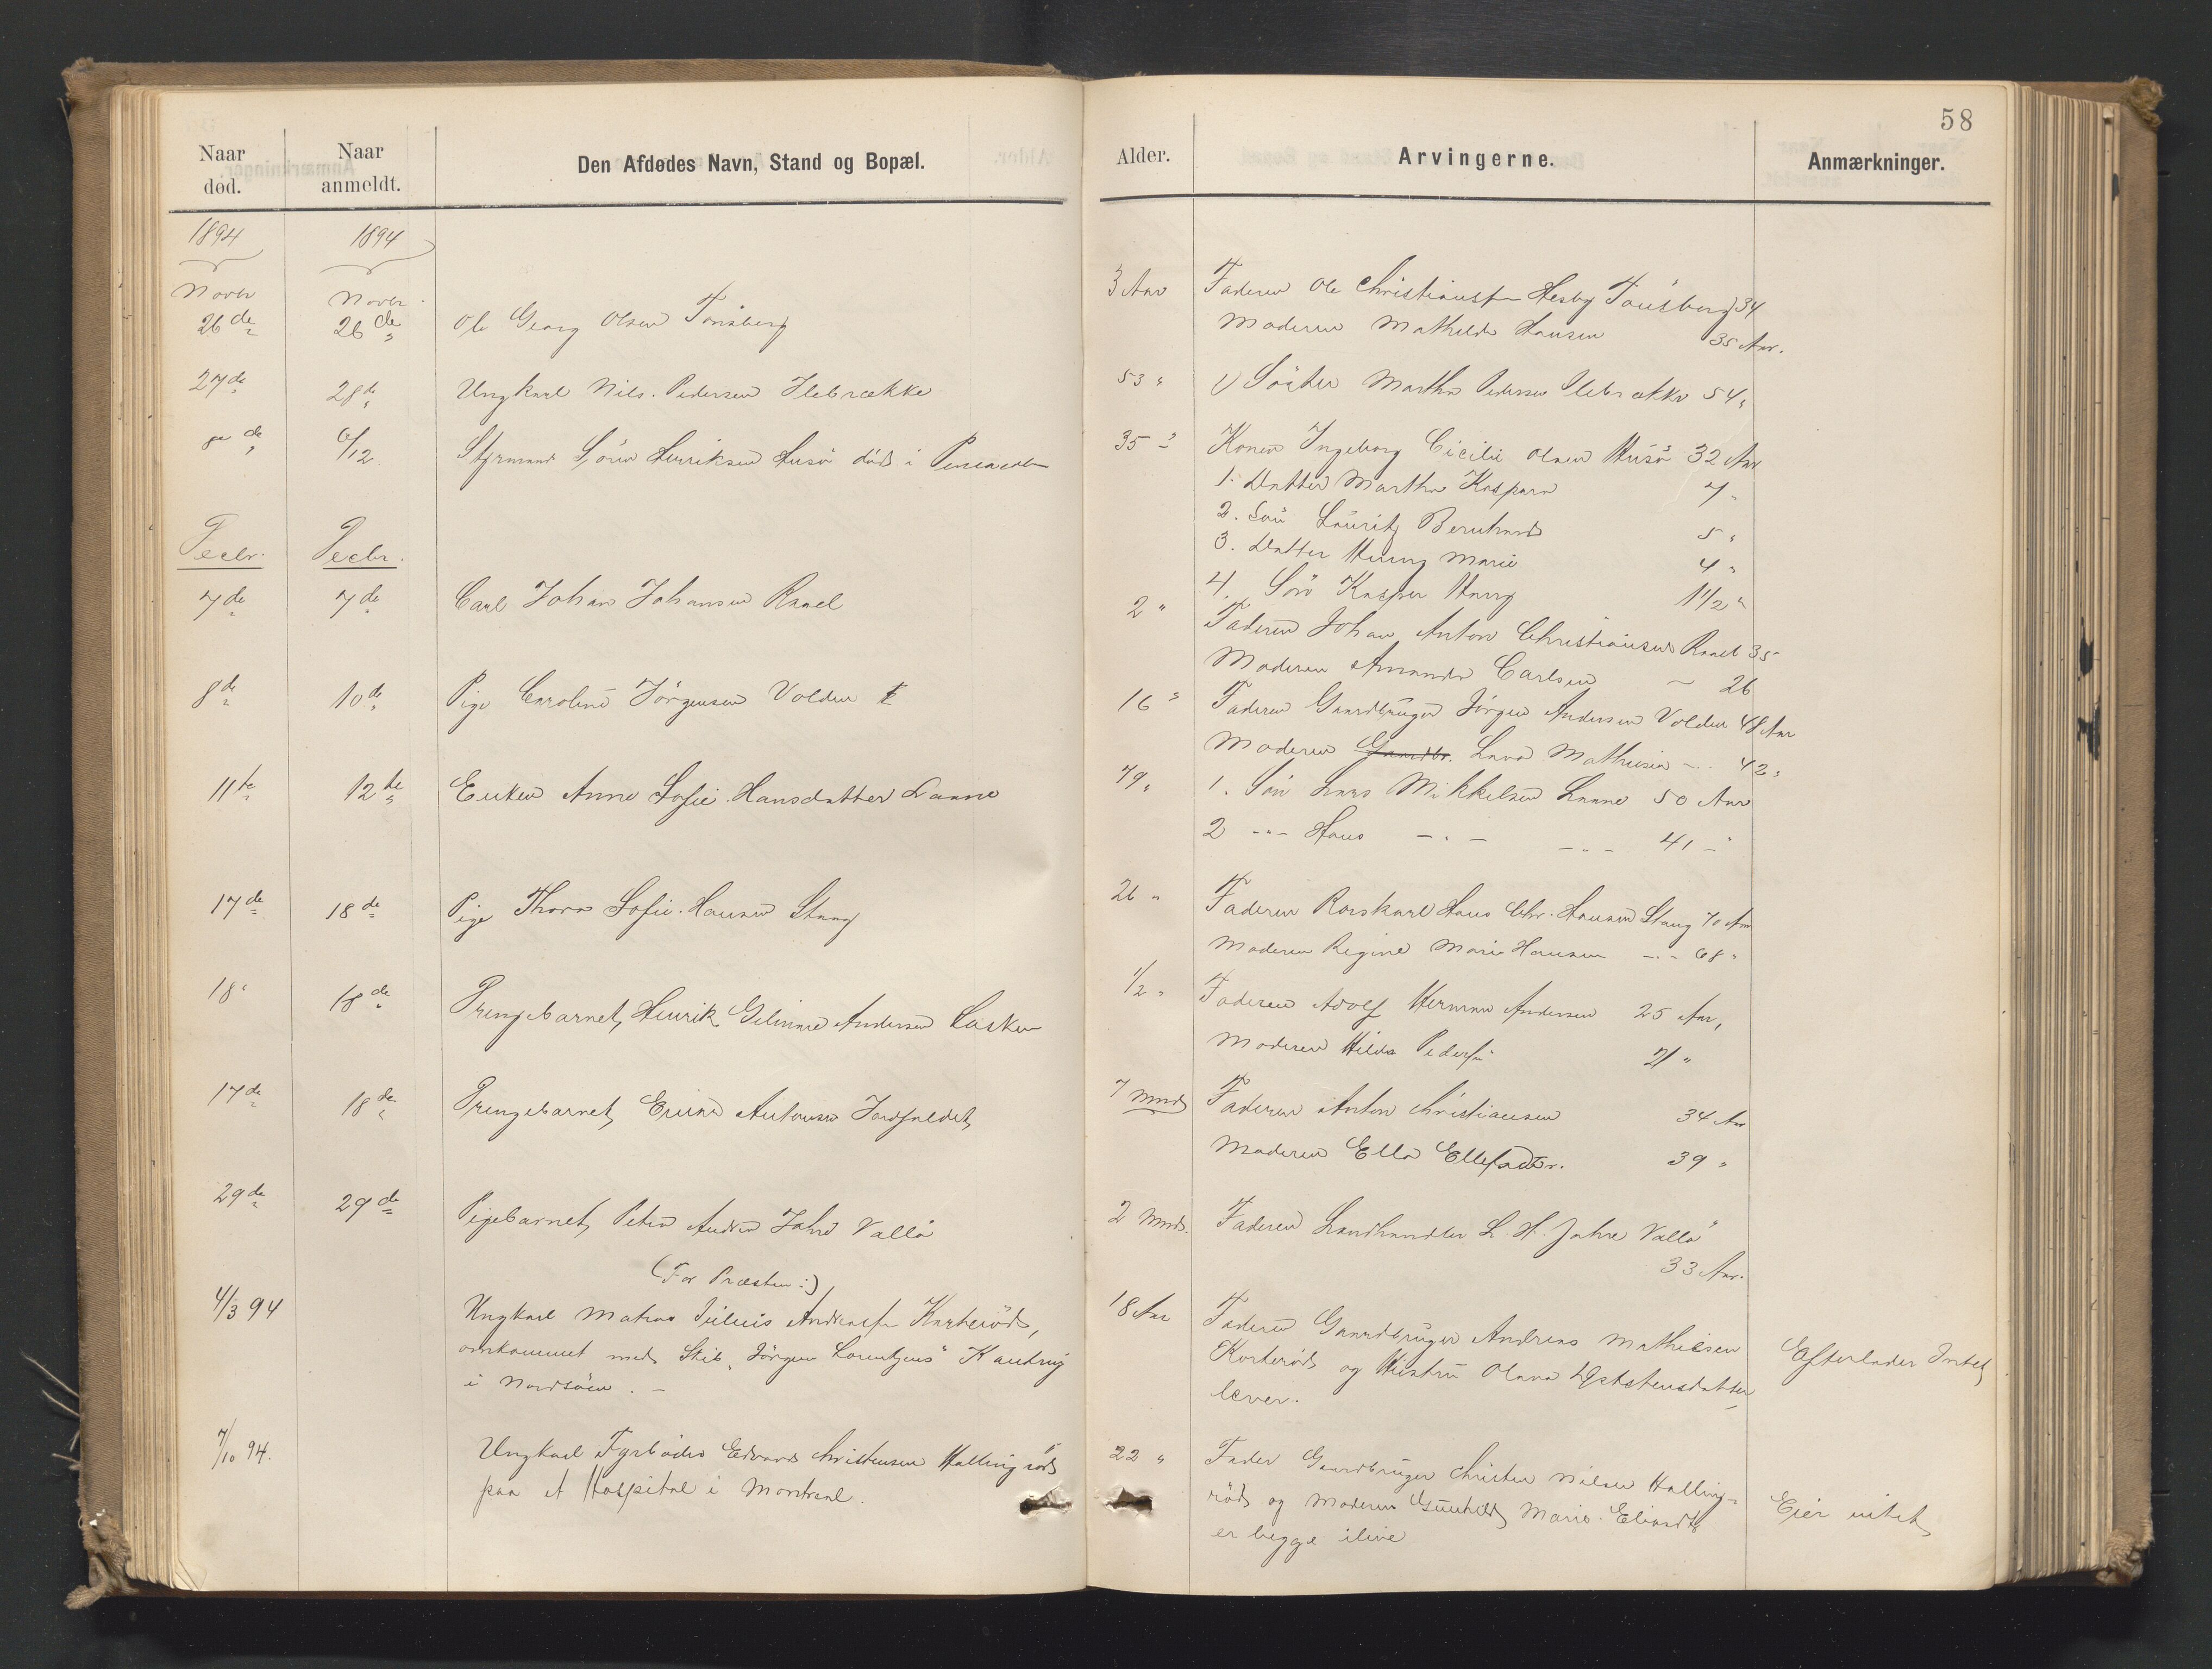 58
Naar død.
Naar anmeldt.
Den Afdødes Navn, Stand og Bopæl.
Alder.
Arvingerne.
Anmærkninger.
1894
1894
Novbr
Novbr.
26de
26de
Ole Georg Olsen Tönsberg
3 Aar
Faderen Ole Christiansen Hesby Tönsberg 34
Moderen Mathilde Hansen 35 Aar.
27de
28de
Ungkarl Nils Pedersen Ilebrække
53 "
1) Söster Martha Pedersen Ilebrække 54 "
de
6/12
Styrmand Sören Henriksen Husö död i Pensacola
35 "
Konen Ingeborg Cicilie Olsen Husö 32 Aar
1. Datter Martha Kaspara 7 "
2. Sön Lauritz Bernhard 5 "
3. Datter Marie 4 "
4. Sön Kasper Harry 1 1/2 "
Decbr.
Decbr.
7de
7de
Carl Johan Johansen Rael
2 "
Faderen Johan Anton Christiansen Rael 35
Moderen Amanda Carlsen – 26
8de
10de
Pige Caroline Jörgensen Volden
16 "
Faderen Gaardbruger Jörgen Andersen Volden 48 Aar
Moderen Gaardbr. Lava Mathisen – 42 "
11te
12te
Enken Anne Sofie Hansdatter Laane
79 "
1. Sön Lars Mikkelsen Laane 50 Aar
2 -"- Hans -"- -"- 41 "
17de
18de
Pige Thora Sofie Hansen Stang
26 "
Faderen Rorskarl Hans Chr. Hansen Stang 70 Aar
Moderen Regine Marie Hansen -"- 68 "
18 "
18de
Drengebarnet, Henrik Andersen
1/2 "
Faderen Adolf Herman Andersen 25 Aar,
Moderen Hilda Pedersen 21 "
17de
18de
Drengebarnet, Einar Antonsen Jordfaldet,
7 Mnd
Faderen Anton Christiansen 34 Aar
Moderen Ella Ellefsdtr. 39 "
29de
29de
Pigebarnet, Petra Andrea Jahre Vallö
2 Mnd.
Faderen Landhandler L. H. Jahre Vallö
33 Aar.
(For Præsten:)
4/3 94
Ungkarl Matros Julius Andreasen Korteröd,
omkommet med Skib "Jörgen Lorentzens"
i Nordsöen. –
18 Aar
Faderen Gaardbruger Andreas Mathisen
Korterød og Hustru Olava
lever.
Efterlader Intet
7/10 94.
Ungkarl Fyrböder Edvard Christensen Hallingröd
paa et Hospital i Montreal.
22 "
Fader Gaardbruger Christen Nilsen Halling-
röd og Moderen Gunhild Marie
er begge ilive
Eier intet